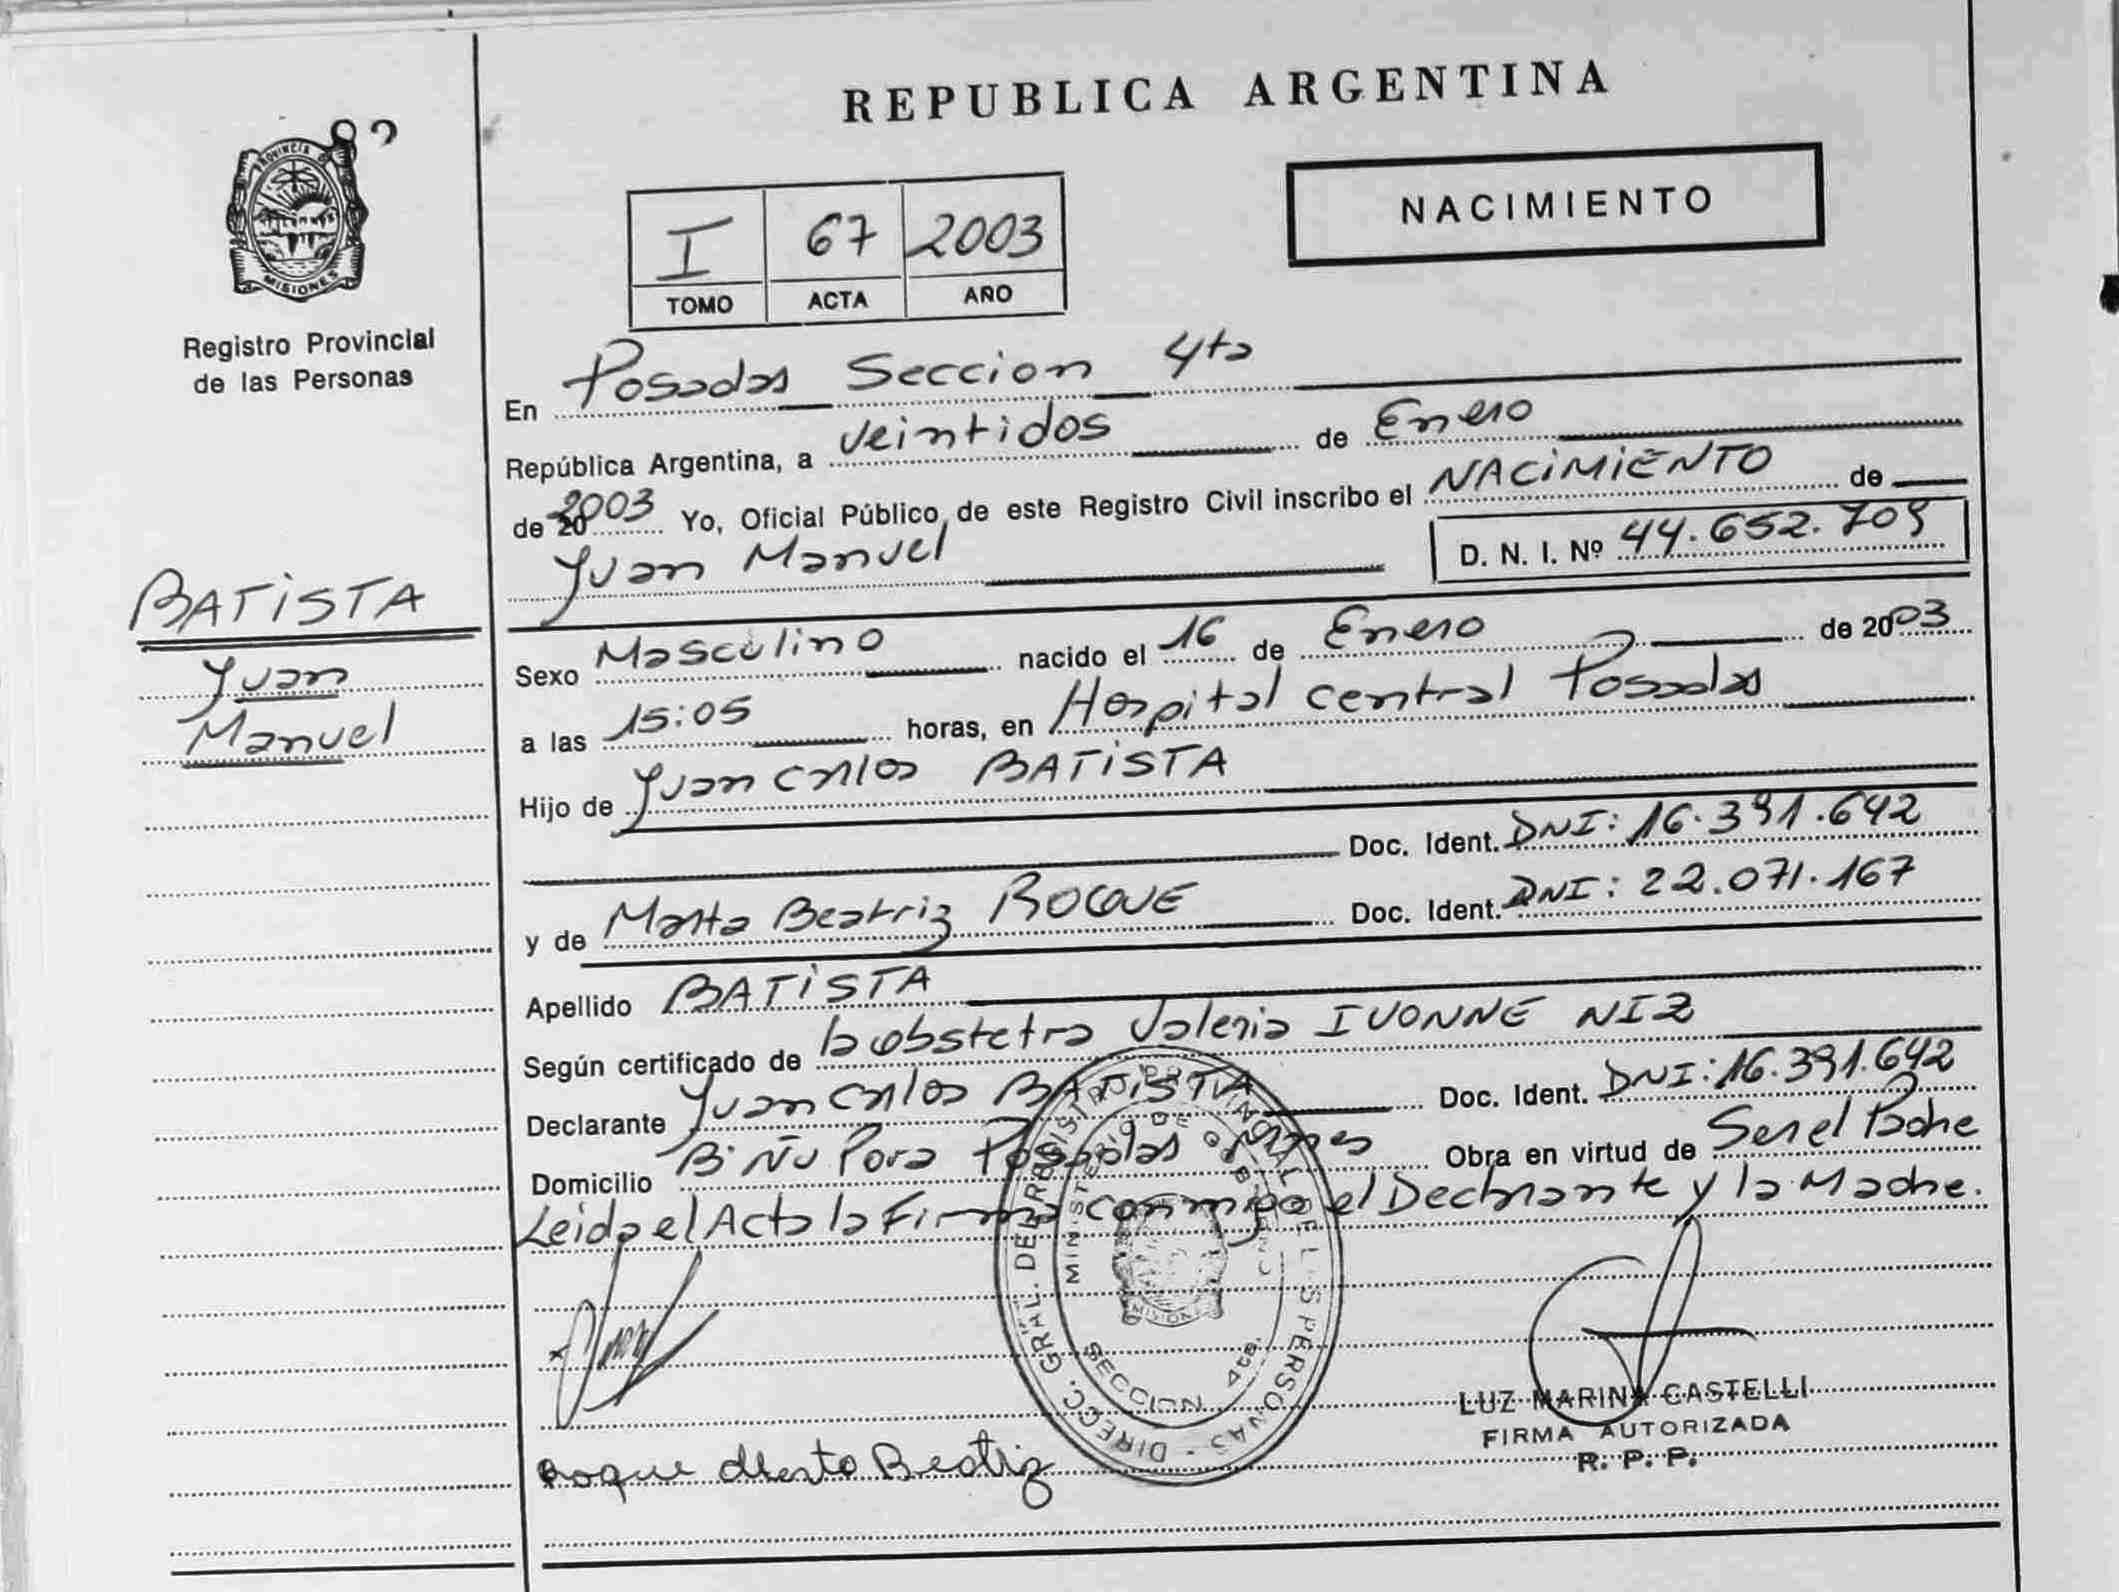 REPUBLICA ARGENTINA
82
PROVINCIA DE
MISIONES
Registro Provincial
de las Personas
NACIMIENTO
I 67 2003
TOMO ACTA AÑO
En Posadas Seccion 4ta
República Argentina, a veintidos de Enero
de 2003 Yo, Oficial Público de este Registro Civil inscribo el NACIMIENTO de
Juan Manuel D. N. I. Nº 44.652.709
BATISTA
Juan
Manuel
Sexo Masculino nacido el 16 de Enero de 2003
a las 15:05 horas, en Hospital central Posadas
Hijo de Juan Carlos BATISTA
Doc. Ident. DNI: 16.391.642
y de Marta Beatriz ROQUE Doc. Ident. DNI: 22.071.167
Apellido BATISTA
Según certificado de la obstetra Valeria IVONNE NIZ
Declarante Juan Carlos BATISTA Doc. Ident. DNI: 16.391.642
Domicilio Bº Ñu Pora Posadas Mnes Obra en virtud de Ser el Padre
Leida el Acta la Firma conmigo el Declarante y la Madre.
DIRECC. GRAL. DEL REGISTRO PROVINCIAL DE LAS PERSONAS
MINISTERIO DE GOBIERNO
MISIONES
SECCION 4ta.
LUZ MARINA CASTELLI
FIRMA AUTORIZADA
R. P. P.
Roque Beatriz